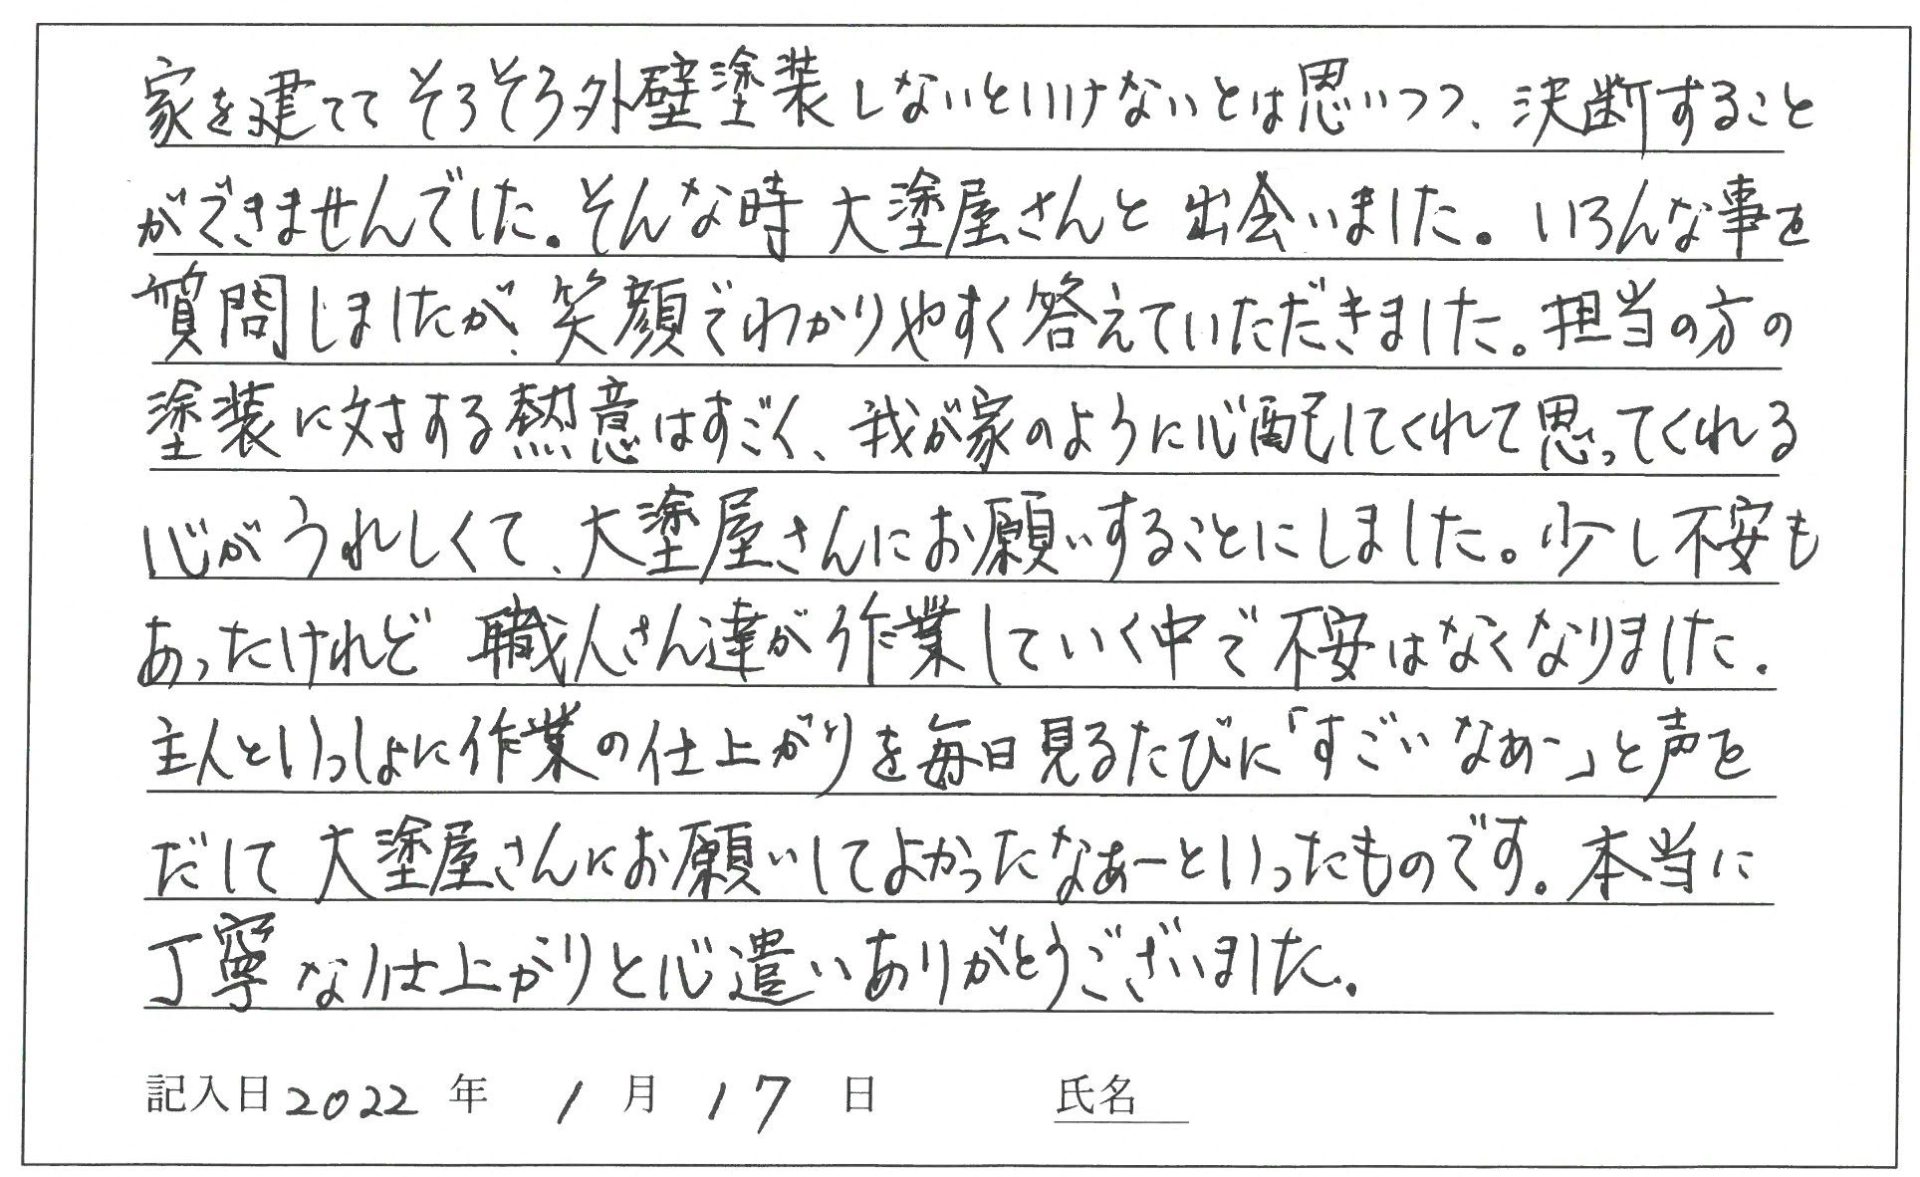 家を建てて そろそろ外壁塗装しないといけないとは思いつつ、決断すること
ができませんでした。そんな時 大塗屋さんと 出会いました。いろんな事を
質問しましたが、笑顔でわかりやすく答えていただきました。担当の方の
塗装に対する熱意はすごく、我が家のように心配してくれて思ってくれる
心がうれしくて、大塗屋さんにお願いすることにしました。少し不安も
あったけれど 職人さん達が作業していく中で不安はなくなりました。
主人といっしょに作業の仕上がりを毎日見るたびに「すごいなぁー」と声を
だして 大塗屋さんにお願いしてよかったなぁーといったものです。本当に
丁寧な仕上がりと心遣いありがとうございました。
記入日 2022 年 1 月 17 日 氏名